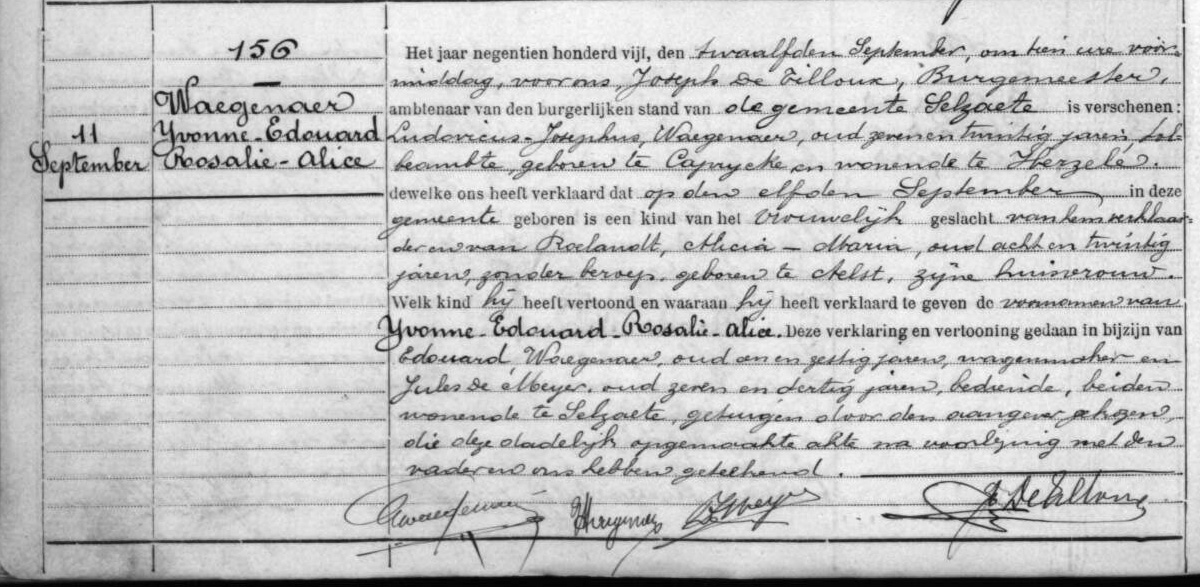 156
Waegenaer
Yvonne-Edouard
Rosalie-Alice
11
September
Het jaar negentien honderd vijf, den twaalfden September, om tien ure voor-
middag, voor ons, Joseph De Tilloux, Burgemeester,
ambtenaar van den burgerlijken stand van de gemeente Selzaete is verschenen:
Ludovicus-Josephus, Waegenaer, oud zeven en twintig jaren, tol-
beambte, geboren te Caprycke en wonende te Herzele.
dewelke ons heeft verklaard dat op den elfden September in deze
gemeente geboren is een kind van het vrouwelijk geslacht van hem verklaar-
der en van Roelandt, Alicia-Maria, oud acht en twintig
jaren, zonder beroep, geboren te Aelst, zijne huisvrouw.
Welk kind hij heeft vertoond en waaraan hij heeft verklaard te geven de voornamen van
Yvonne-Edouard-Rosalie-Alice. Deze verklaring en vertooning gedaan in bijzijn van
Edouard, Waegenaer, oud en zestig jaren, wagenmaker en
Jules De Meyer, oud zeven en dertig jaren, bediende, beiden
wonende te Selzaete, getuigen door den aangever gekozen,
die deze dadelijk opgemaakte akte na voorlezing met den
vader en ons hebben geteekend.